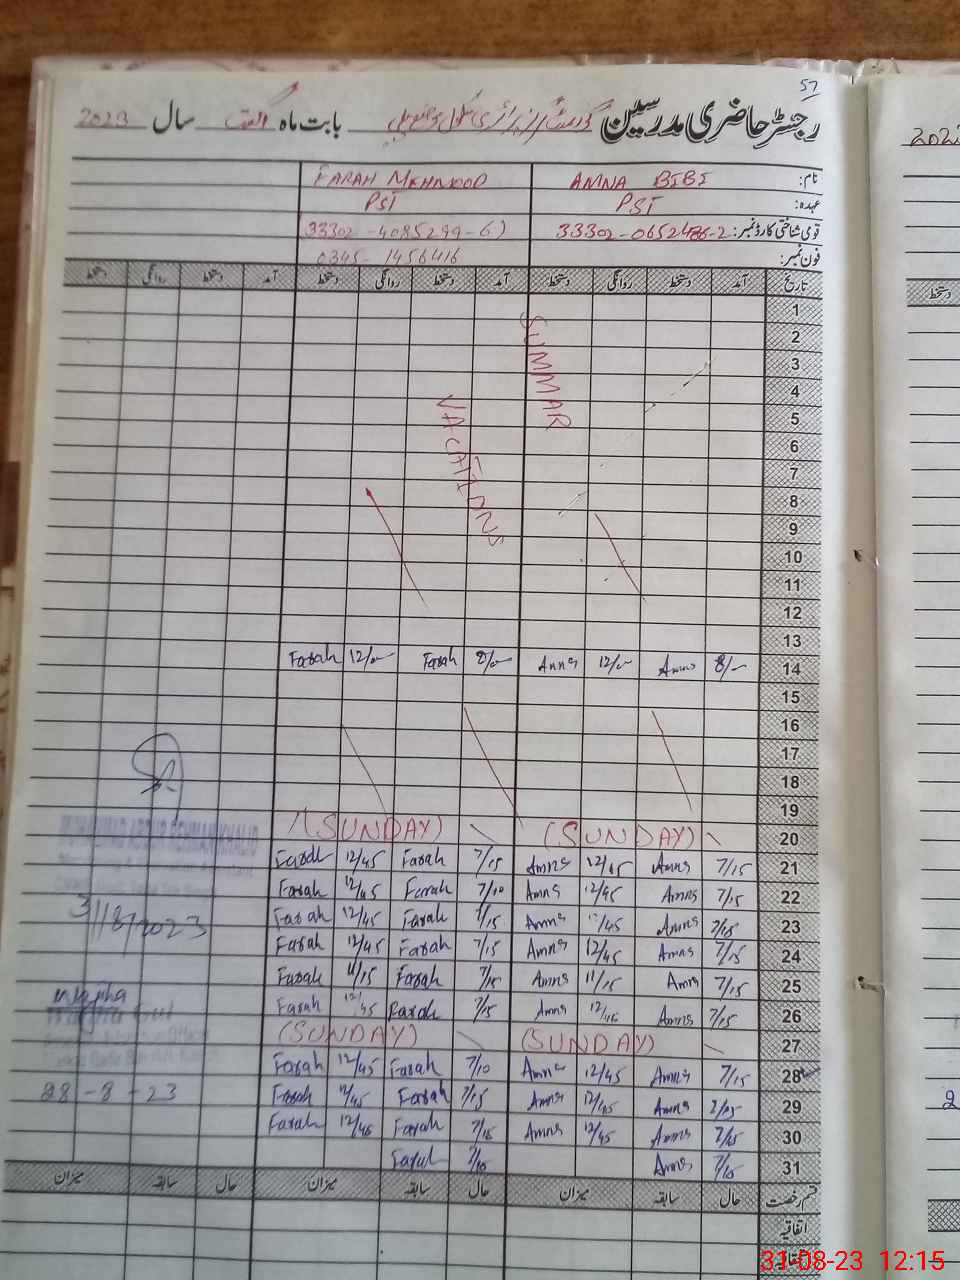 57
رجسٹر حاضری مدرسین گورنمنٹ گرلز پرائمری سکول بابت ماہ اگست سال 2023
نام: AMNA BIBI FARAH MEHMOOD
عہدہ: PST PST
قومی شناختی کارڈ نمبر: 33302-0652486-2 33302-4085299-6
فون نمبر: 0345-1456416
تاریخ آمد دستخط روانگی دستخط آمد دستخط روانگی دستخط آمد دستخط روانگی دستخط
1
2
3
4
5
6
7
8
9
10
11
12
13
SUMMAR
VACATIONS
14 8/- Amna 12/- Anna 8/- Farah 12/- Farah
15
16
17
18
19
20 (SUNDAY) (SUNDAY)
21 7/15 Amna 12/45 Amna 7/15 Farah 12/45 Farah
22 7/15 Amna 12/45 Amna 7/10 Farah 12/45 Farah
23 7/15 Amna 12/45 Amna 7/15 Farah 12/45 Farah
24 7/15 Amna 12/45 Amna 7/15 Farah 12/45 Farah
25 7/15 Amna 11/15 Amna 7/15 Farah 11/15 Farah
26 7/15 Amna 12/45 Amna 7/15 Farah 12/45 Farah
27 (SUNDAY) (SUNDAY)
28 7/15 Amna 12/45 Amna 7/10 Farah 12/45 Farah
29 Amna 12/45 Amna 7/15 Farah 12/45 Farah
30 7/15 Amna 12/45 Amna 7/15 Farah 12/45 Farah
31 7/10 Amna 7/10 Farah
31/8/2023
28-8-23
قسم رخصت حال سابقہ میزان حال سابقہ میزان حال سابقہ میزان
اتفاقیہ
دستخط
31-08-23 12:15